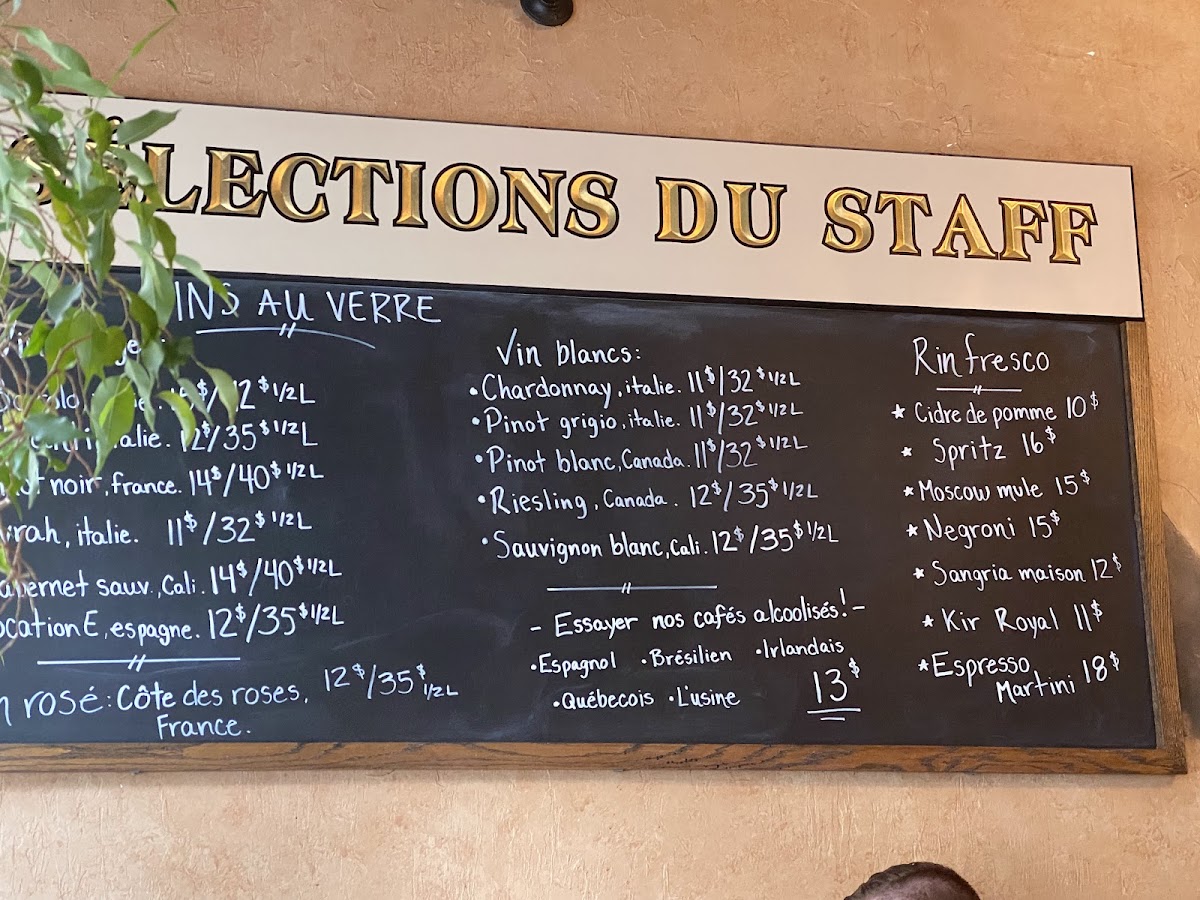 SÉLECTIONS DU STAFF
INS AU VERRE
12$ 1/2L
12$/35$ 1/2L
noir, france. 14$/40$ 1/2L
rah, italie. 11$/32$ 1/2L
ernet sauv., Cali. 14$/40$ 1/2L
ocation E, espagne. 12$/35$ 1/2L
rosé: Côte des roses, 12$/35$ 1/2L
France.
Vin blancs:
• Chardonnay, italie. 11$/32$ 1/2L
• Pinot grigio, italie. 11$/32$ 1/2L
• Pinot blanc, Canada. 11$/32$ 1/2L
• Riesling, Canada. 12$/35$ 1/2L
• Sauvignon blanc, Cali. 12$/35$ 1/2L
- Essayer nos cafés alcoolisés! -
• Espagnol • Brésilien • Irlandais
• Québecois • L'usine 13$
Rinfresco
* Cidre de pomme 10$
* Spritz 16$
* Moscow mule 15$
* Negroni 15$
* Sangria maison 12$
* Kir Royal 11$
* Espresso
Martini 18$